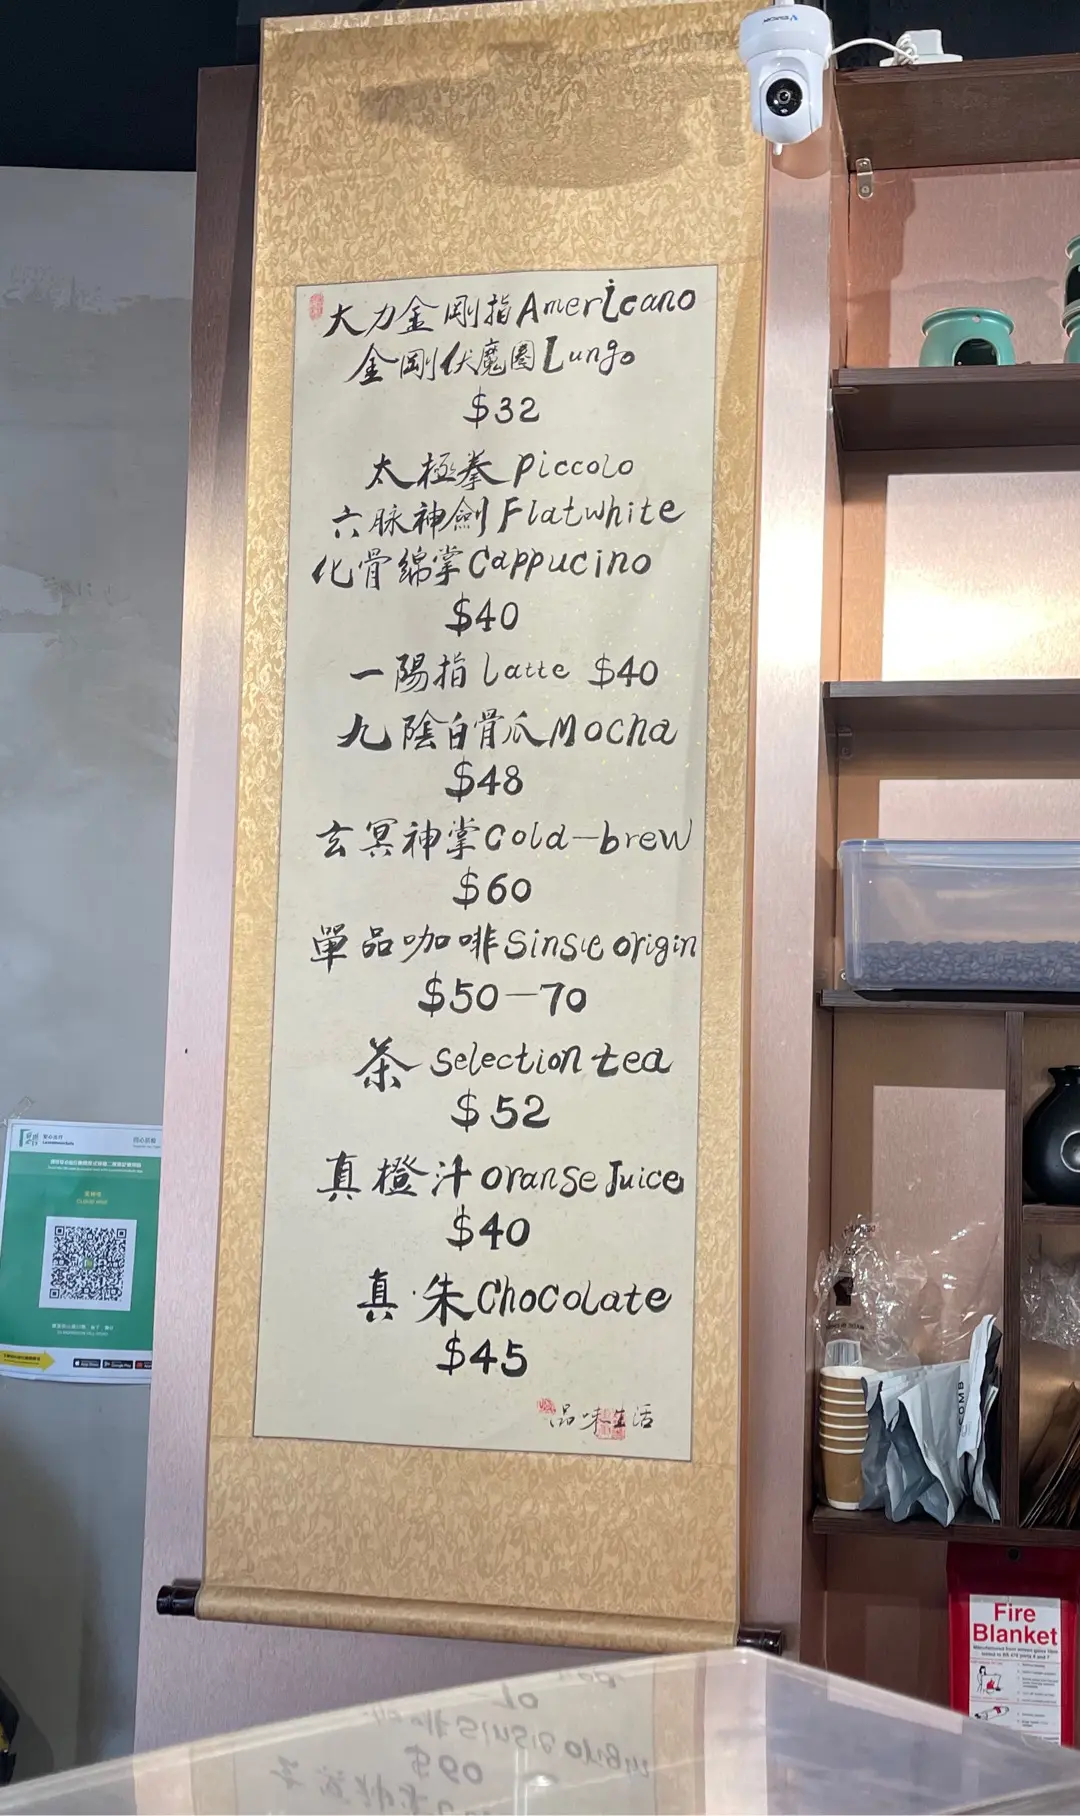 大力金剛指Americano
金剛伏魔圈Lungo
$32
太極拳piccolo
六脉神劍Flatwhite
化骨綿掌Cappucino
$40
一陽指Latte $40
九陰白骨爪Mocha
$48
玄冥神掌Cold-brew
$60
單品咖啡Sinsle origin
$50-70
茶 Selection tea
$52
真橙汁oranse Juice
$40
真·朱Chocolate
$45
品味生活
安心出行
LeaveHomeSafe
Fire
Blanket